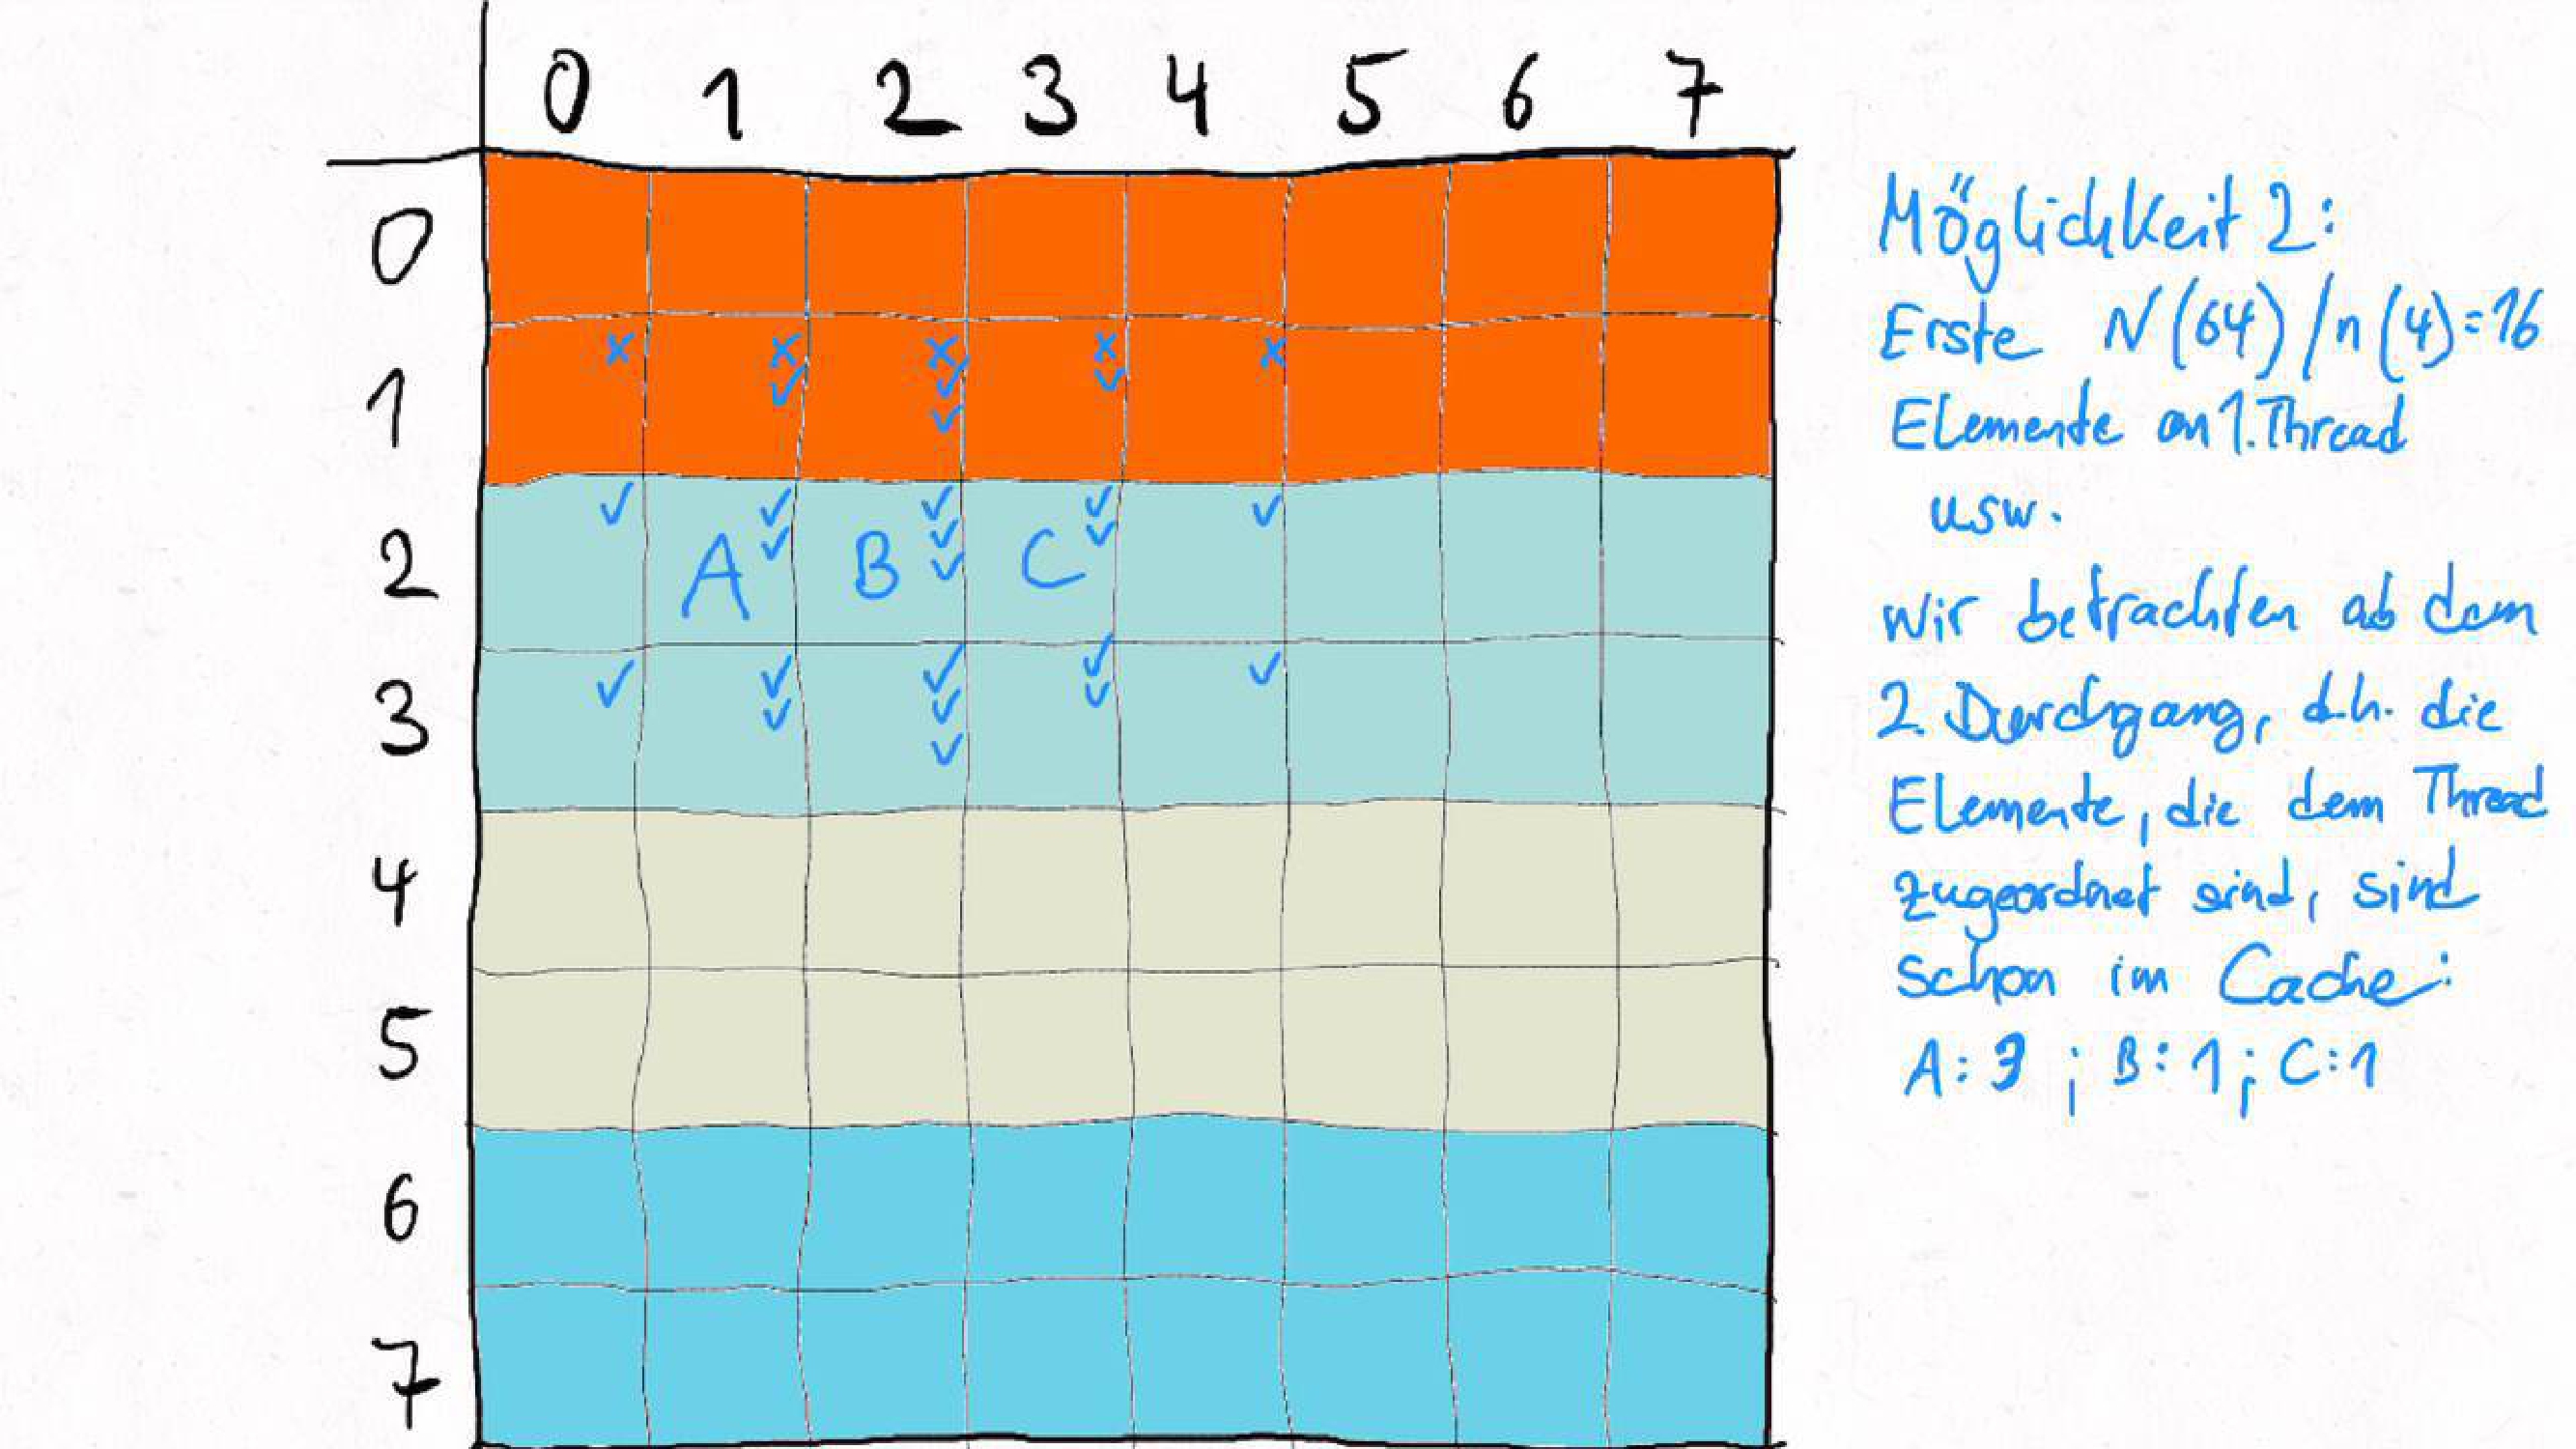 0 1 2 3 4 5 6 7
0
1
2
3
4
5
6
7
x x x x x
✓ ✓ ✓
✓
✓ ✓ ✓ ✓ ✓
✓ ✓ ✓
✓
A B C
✓ ✓ ✓ ✓ ✓
✓ ✓ ✓
✓
Möglichkeit 2:
Erste N(64)/n(4)=16
Elemente an 1. Thread
usw.
Wir betrachten ab dem
2. Durchgang, d.h. die
Elemente, die dem Thread
zugeordnet sind, sind
schon im Cache:
A: 3 ; B: 1 ; C: 1